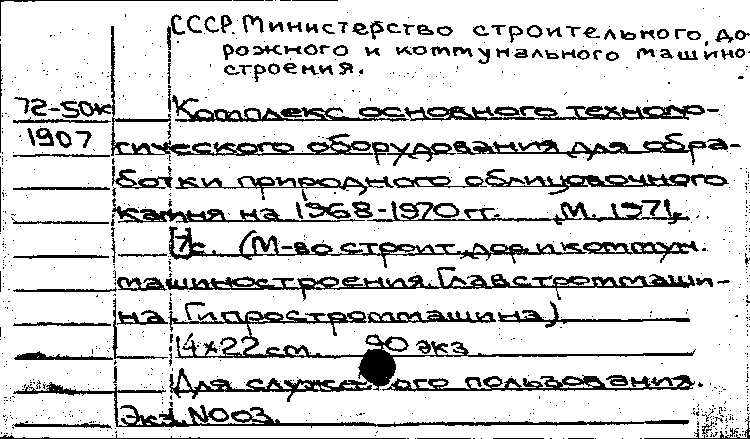 СССР. Министерство строительного, до
рожного и коммунального машино
строения.
72-50ж Комплекс основного техноло-
1907 гического оборудования для обра-
ботки природного облицовочного
камня на 1968-1970 гг. М., 1971,
[7]с. (М-во строит., дор. и коммун.
машиностроения. Главстроммаши-
на. Гипростроммашина)
14×22 см. 90 экз.
Для служе ого пользования.
Экз. №003.